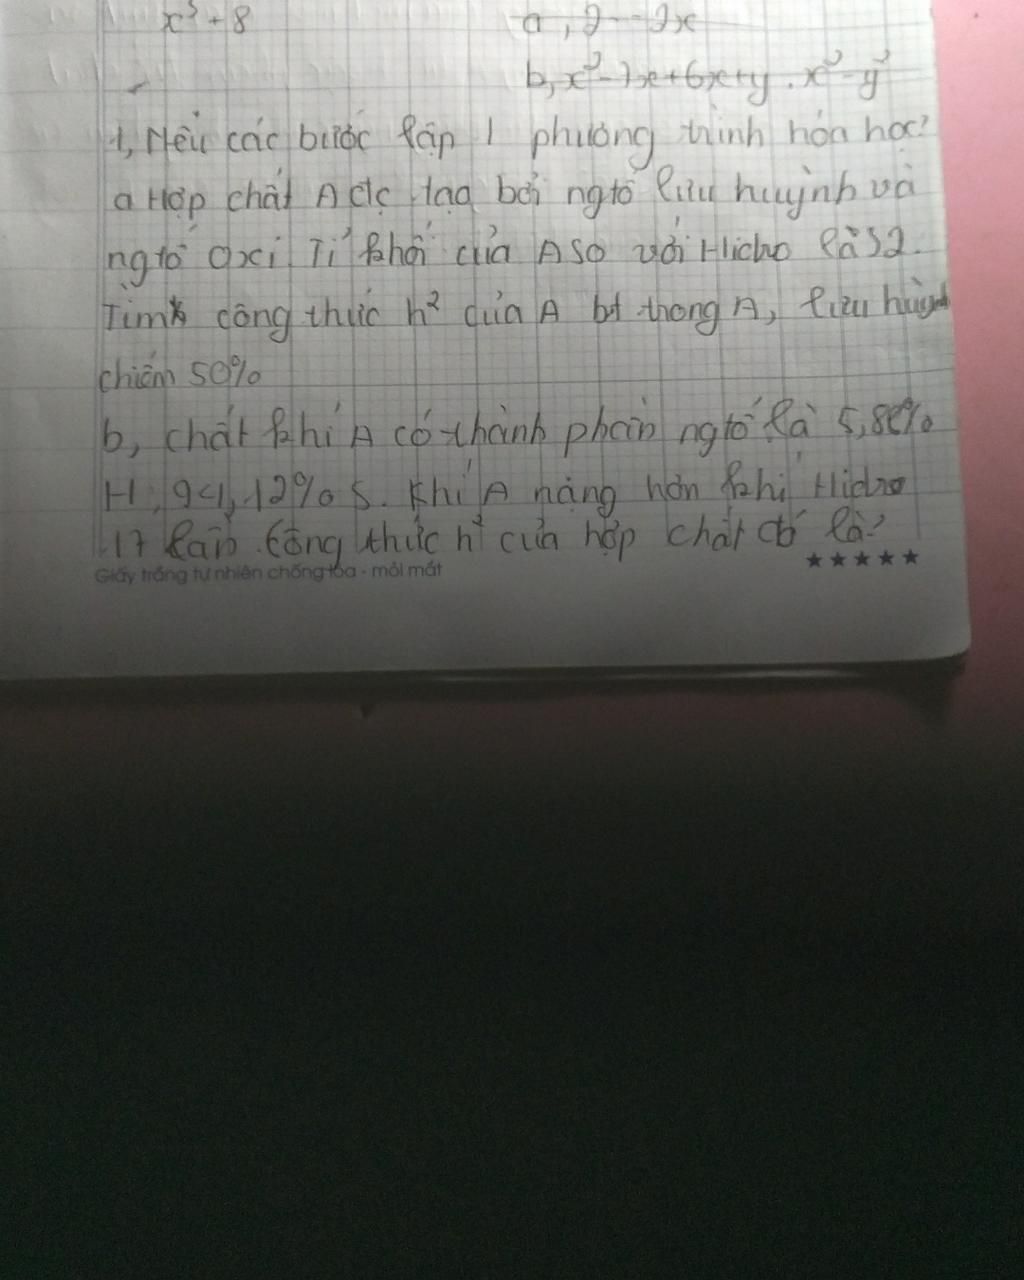 x³ + 8
a, 2 - 2x
b, x² - 2x + 6x + y . x² - y²
1, Nêu các bước lập 1 phương trình hóa học?
a Hợp chất A đc tạo bởi ngtố lưu huỳnh và
ngtố oxi Tỉ khối của A so với Hidro là 32.
Tìm công thức h² của A bt trong A, lưu huỳnh
chiếm 50%
b, chất khí A có thành phần ngtố là 5,88%
H, 94,12% S. Khí A nặng hơn khí Hidro
17 lần. Công thức h² của hợp chất đó là?
Giấy trắng tự nhiên chống lóa - mỏi mắt